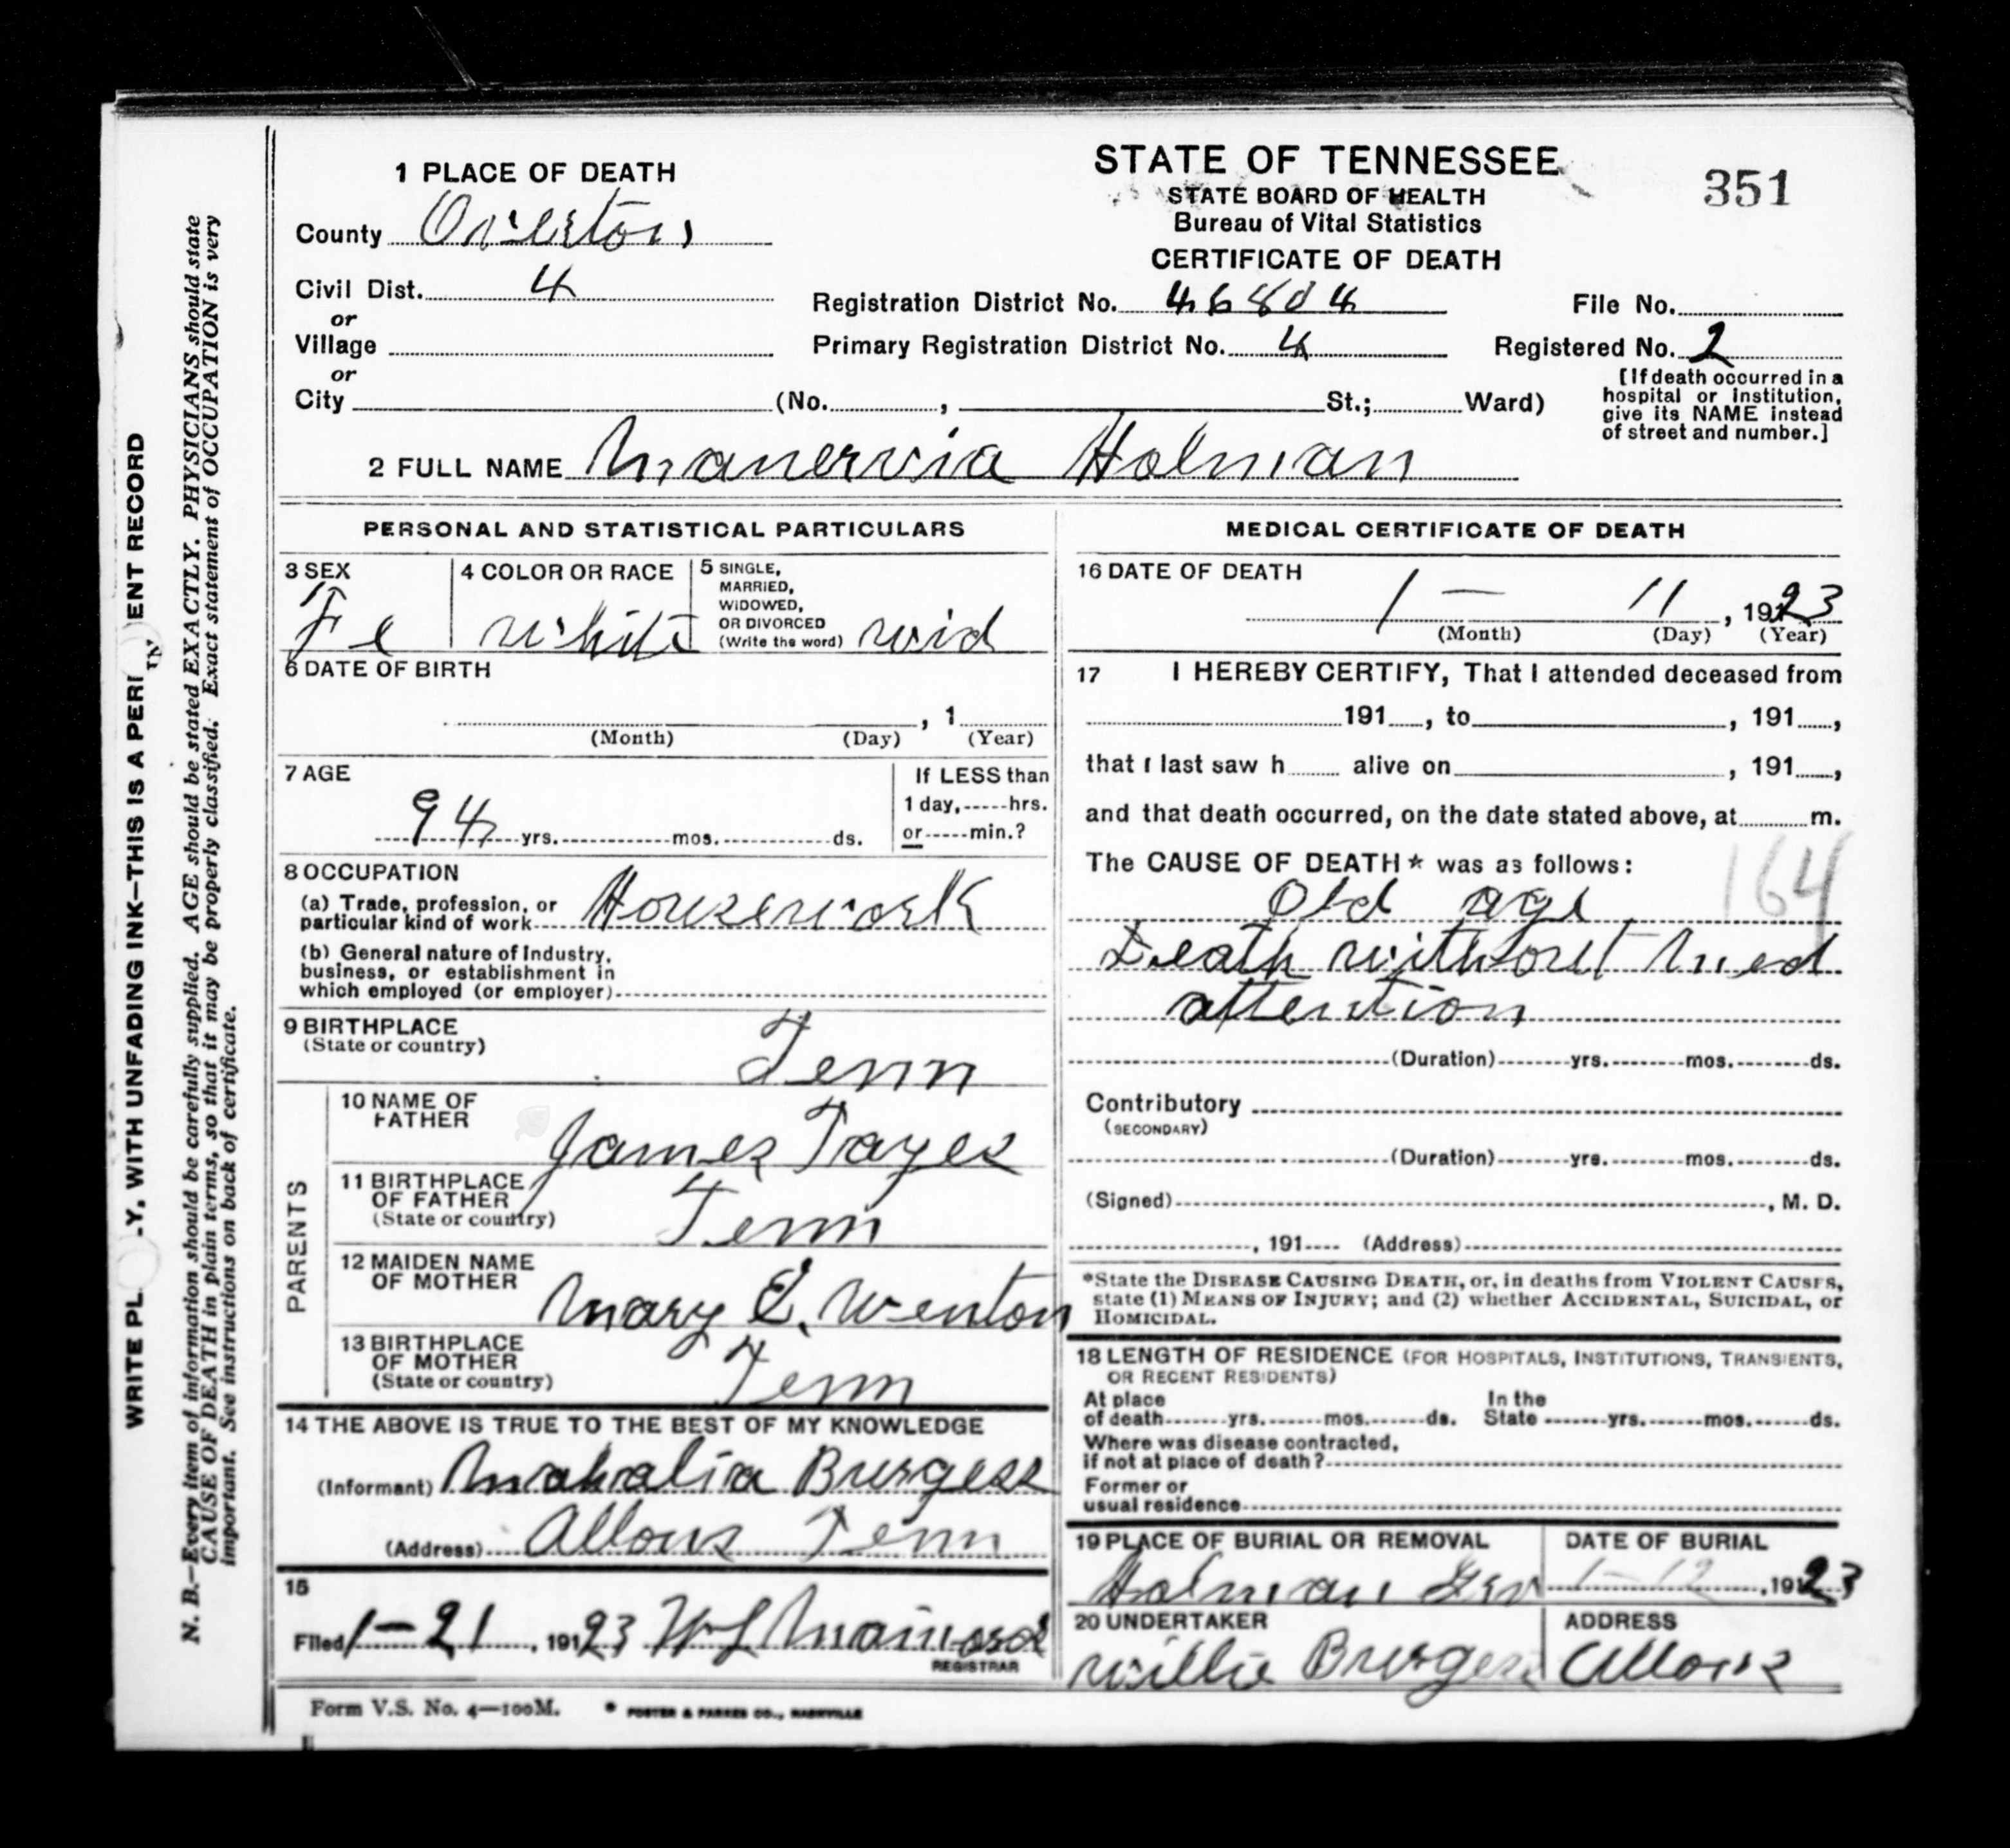 WRITE PL Y, WITH UNFADING INK—THIS IS A PER ENT RECORD
N. B.—Every item of information should be carefully supplied. AGE should be stated EXACTLY. PHYSICIANS should state
CAUSE OF DEATH in plain terms, so that it may be properly classified. Exact statement of OCCUPATION is very
important. See instructions on back of certificate.
1 PLACE OF DEATH
County Overton
Civil Dist. 4
or
Village
or
City (No. , St.; Ward)
STATE OF TENNESSEE
STATE BOARD OF HEALTH
Bureau of Vital Statistics
CERTIFICATE OF DEATH
351
Registration District No. 46804 File No.
Primary Registration District No. 4 Registered No. 2
[If death occurred in a
hospital or institution,
give its NAME instead
of street and number.]
2 FULL NAME Manervia Holman
PERSONAL AND STATISTICAL PARTICULARS
3 SEX
Fe
4 COLOR OR RACE
White
5 SINGLE,
MARRIED,
WIDOWED,
OR DIVORCED
(Write the word) wid
6 DATE OF BIRTH
, 1
(Month) (Day) (Year)
7 AGE
94 yrs. mos. ds.
If LESS than
1 day, hrs.
or min.?
8 OCCUPATION
(a) Trade, profession, or
particular kind of work Housework
(b) General nature of industry,
business, or establishment in
which employed (or employer)
9 BIRTHPLACE
(State or country) Tenn
PARENTS
10 NAME OF
FATHER James Tayes
11 BIRTHPLACE
OF FATHER
(State or country) Tenn
12 MAIDEN NAME
OF MOTHER Mary E. Wenton
13 BIRTHPLACE
OF MOTHER
(State or country) Tenn
14 THE ABOVE IS TRUE TO THE BEST OF MY KNOWLEDGE
(Informant) Mahalia Burgess
(Address) Allons Tenn
15
Filed 1-21, 19123
REGISTRAR
Form V.S. No. 4—100M. FOSTER & PARKES CO., NASHVILLE
MEDICAL CERTIFICATE OF DEATH
16 DATE OF DEATH
1 — 11, 1923
(Month) (Day) (Year)
17 I HEREBY CERTIFY, That I attended deceased from
191 , to , 191 ,
that I last saw h alive on , 191 ,
and that death occurred, on the date stated above, at m.
The CAUSE OF DEATH* was as follows:
164
Old age
Death without Med
attention
(Duration) yrs. mos. ds.
Contributory
(SECONDARY)
(Duration) yrs. mos. ds.
(Signed) , M. D.
, 191 (Address)
*State the DISEASE CAUSING DEATH, or, in deaths from VIOLENT CAUSES,
state (1) MEANS OF INJURY; and (2) whether ACCIDENTAL, SUICIDAL, or
HOMICIDAL.
18 LENGTH OF RESIDENCE (FOR HOSPITALS, INSTITUTIONS, TRANSIENTS,
OR RECENT RESIDENTS)
At place In the
of death yrs. mos. ds. State yrs. mos. ds.
Where was disease contracted,
if not at place of death?
Former or
usual residence
19 PLACE OF BURIAL OR REMOVAL
Holman
DATE OF BURIAL
1-12, 19123
20 UNDERTAKER
Willie Burgess
ADDRESS
Allons